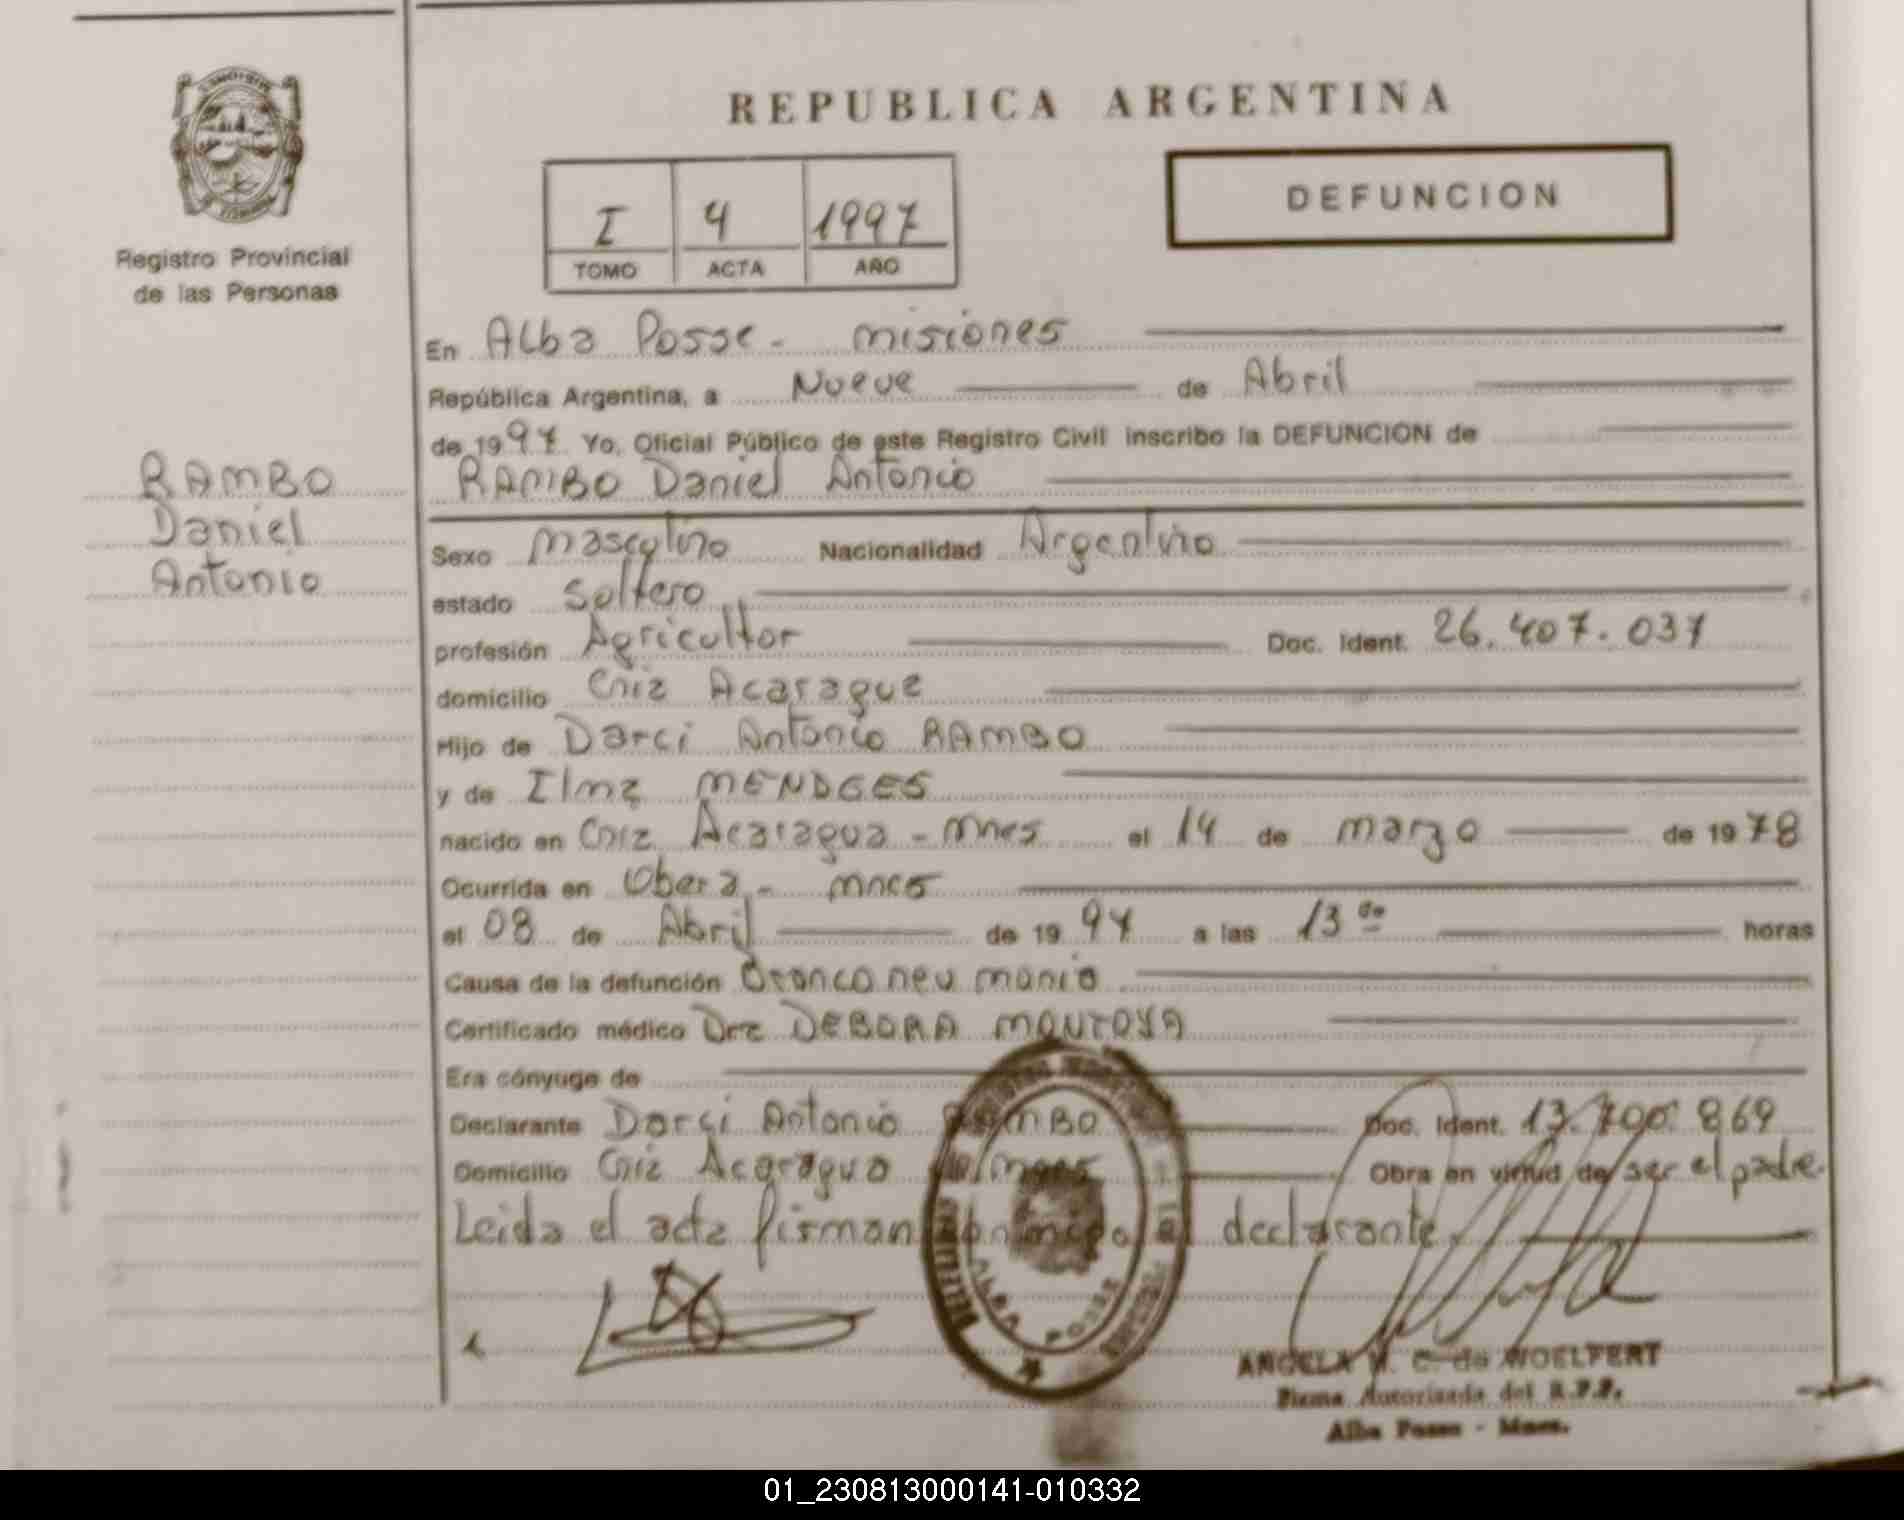 REPUBLICA ARGENTINA
DEFUNCION
I 4 1997
TOMO ACTA AÑO
Registro Provincial
de las Personas
RAMBO
Daniel
Antonio
En Alba Posse - misiones
República Argentina, a Nueve de Abril
de 1997 Yo, Oficial Público de este Registro Civil inscribo la DEFUNCION de
RAMBO Daniel Antonio
Sexo masculino Nacionalidad Argentino
estado Soltero
profesión Agricultor Doc. Ident. 26.407.037
domicilio Cnia Acarague
Hijo de Darci Antonio RAMBO
y de Ilma MENDGES
nacido en Cnia Acaragua - mnes el 14 de marzo de 1978
Ocurrida en Obera - mnes
el 08 de Abril de 1997 a las 13 horas
Causa de la defunción Bronconeumonia
Certificado médico Dra DEBORA MONTOYA
Era cónyuge de
Declarante Darci Antonio RAMBO Doc. Ident. 13.700.869
Domicilio Cnia Acaragua mnes Obra en virtud de ser el padre.
Leida el acta firman conmigo el declarante
ALBA POSSE
ANGELA M. C. de WOELFERT
Firma Autorizada del R.P.P.
Alba Posse - Mnes.
01_230813000141-010332